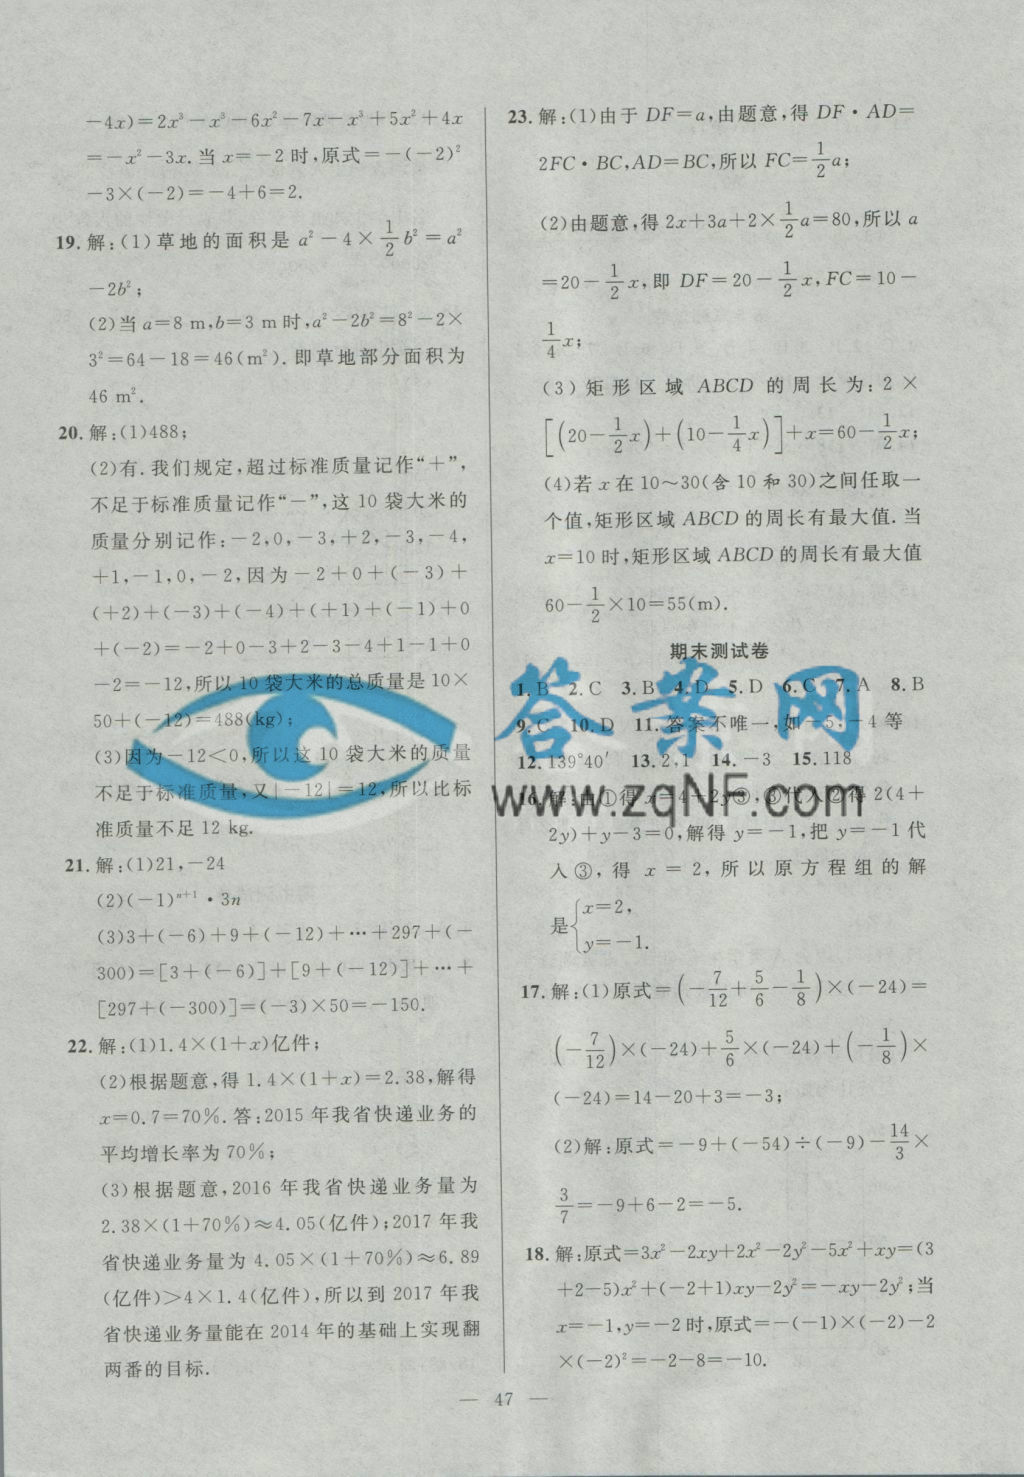 －4x)＝2x³－x³－6x²－7x－x³＋5x²＋4x
＝－x²－3x.当 x＝－2 时,原式＝－(－2)²
－3×(－2)＝－4＋6＝2.
19.解:(1)草地的面积是 a²－4×1/2 b²＝a²
－2b²;
(2)当 a＝8 m,b＝3 m 时,a²－2b²＝8²－2×
3²＝64－18＝46(m²).即草地部分面积为
46 m².
20.解:(1)488;
(2)有.我们规定,超过标准质量记作“＋”,
不足于标准质量记作“－”,这 10 袋大米的
质量分别记作:－2,0,－3,＋2,－3,－4,
＋1,－1,0,－2,因为－2＋0＋(－3)＋
(＋2)＋(－3)＋(－4)＋(＋1)＋(－1)＋0
＋(－2)＝－2＋0－3＋2－3－4＋1－1＋0
－2＝－12,所以 10 袋大米的总质量是 10×
50＋(－12)＝488(kg);
(3)因为－12＜0,所以这 10 袋大米的质量
不足于标准质量,又|－12|＝12,所以比标
准质量不足 12 kg.
21.解:(1)21,－24
(2)(－1)ⁿ⁺¹·3n
(3)3＋(－6)＋9＋(－12)＋…＋297＋(－
300)＝[3＋(－6)]＋[9＋(－12)]＋…＋
[297＋(－300)]＝(－3)×50＝－150.
22.解:(1)1.4×(1＋x)亿件;
(2)根据题意,得 1.4×(1＋x)＝2.38,解得
x＝0.7＝70%.答:2015 年我省快递业务的
平均增长率为 70%;
(3)根据题意,2016 年我省快递业务量为
2.38×(1＋70%)≈4.05(亿件);2017 年我
省快递业务量为 4.05×(1＋70%)≈6.89
(亿件)＞4×1.4(亿件),所以到 2017 年我
省快递业务量能在 2014 年的基础上实现翻
两番的目标.
23.解:(1)由于 DF＝a,由题意,得 DF·AD＝
2FC·BC,AD＝BC,所以 FC＝1/2 a;
(2)由题意,得 2x＋3a＋2×1/2 a＝80,所以 a
＝20－1/2 x,即 DF＝20－1/2 x,FC＝10－
1/4 x;
(3)矩形区域 ABCD 的周长为:2×
[(20－1/2 x)＋(10－1/4 x)]＋x＝60－1/2 x;
(4)若 x 在 10～30(含 10 和 30)之间任取一
个值,矩形区域 ABCD 的周长有最大值.当
x＝10 时,矩形区域 ABCD 的周长有最大值
60－1/2×10＝55(m).
期末测试卷
1.B 2.C 3.B 4.D 5.D 6.C 7.A 8.B
9.C 10.D 11.答案不唯一,如－5,－4 等
12.139°40′ 13.2,1 14.－3 15.118
16.解:由①得 x＝4＋2y③,③代入②得 2(4＋
2y)＋y－3＝0,解得 y＝－1,把 y＝－1 代
入③,得 x＝2,所以原方程组的解
是{x＝2,
y＝－1.
17.解:(1)原式＝(－7/12＋5/6－1/8)×(－24)＝
(－7/12)×(－24)＋5/6×(－24)＋(－1/8)×
(－24)＝14－20＋3＝－3;
(2)解:原式＝－9＋(－54)÷(－9)－14/3×
3/7＝－9＋6－2＝－5.
18.解:原式＝3x²－2xy＋2x²－2y²－5x²＋xy＝(3
＋2－5)x²＋(－2＋1)xy－2y²＝－xy－2y²;当
x＝－1,y＝－2 时,原式＝－(－1)×(－2)－2
×(－2)²＝－2－8＝－10.
答案网
www.zqNF.com
— 47 —